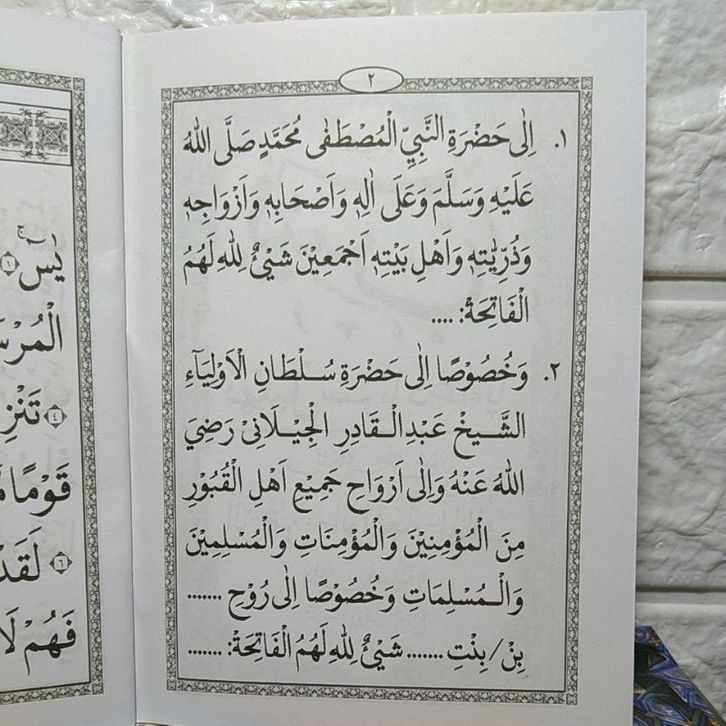 ٢
١. اِلٰى حَضْرَةِ النَّبِيِّ الْمُصْطَفٰى مُحَمَّدٍ صَلَّى اللهُ
عَلَيْهِ وَسَلَّمَ وَعَلَى اٰلِهٖ وَاَصْحَابِهٖ وَاَزْوَاجِهٖ
وَذُرِّيّٰتِهٖ وَاَهْلِ بَيْتِهٖ اَجْمَعِيْنَ شَيْئٌ لِلّٰهِ لَهُمُ
الْفَاتِحَةْ: ....
٢. وَخُصُوْصًا اِلٰى حَضْرَةِ سُلْطَانِ الْاَوْلِيَآءِ
الشَّيْخْ عَبْدِالْقَادِرِ الْجِيْلَانِىْ رَضِيَ
اللهُ عَنْهُ وَاِلٰى اَرْوَاحِ جَمِيْعِ اَهْلِ الْقُبُوْرِ
مِنَ الْمُؤْمِنِيْنَ وَالْمُؤْمِنَاتِ وَالْمُسْلِمِيْنَ
وَالْمُسْلِمَاتِ وَخُصُوْصًا اِلٰى رُوْحِ .......
بِنْ/بِنْتِ ....... شَيْئٌ لِلّٰهِ لَهُمُ الْفَاتِحَةْ: .......
يٰسۤ ۚ ١
تَنْزِ
قَوْمًا
٦ لَقَدْ
فَهُمْ لَا